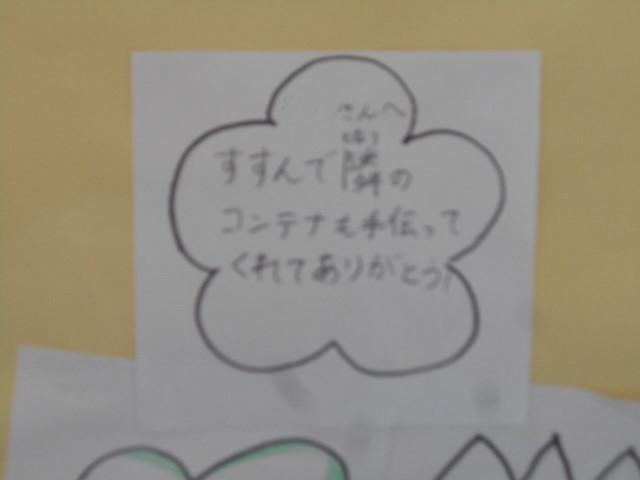 さんへ
すすんで隣の
コンテナも手伝って
くれてありがとう!